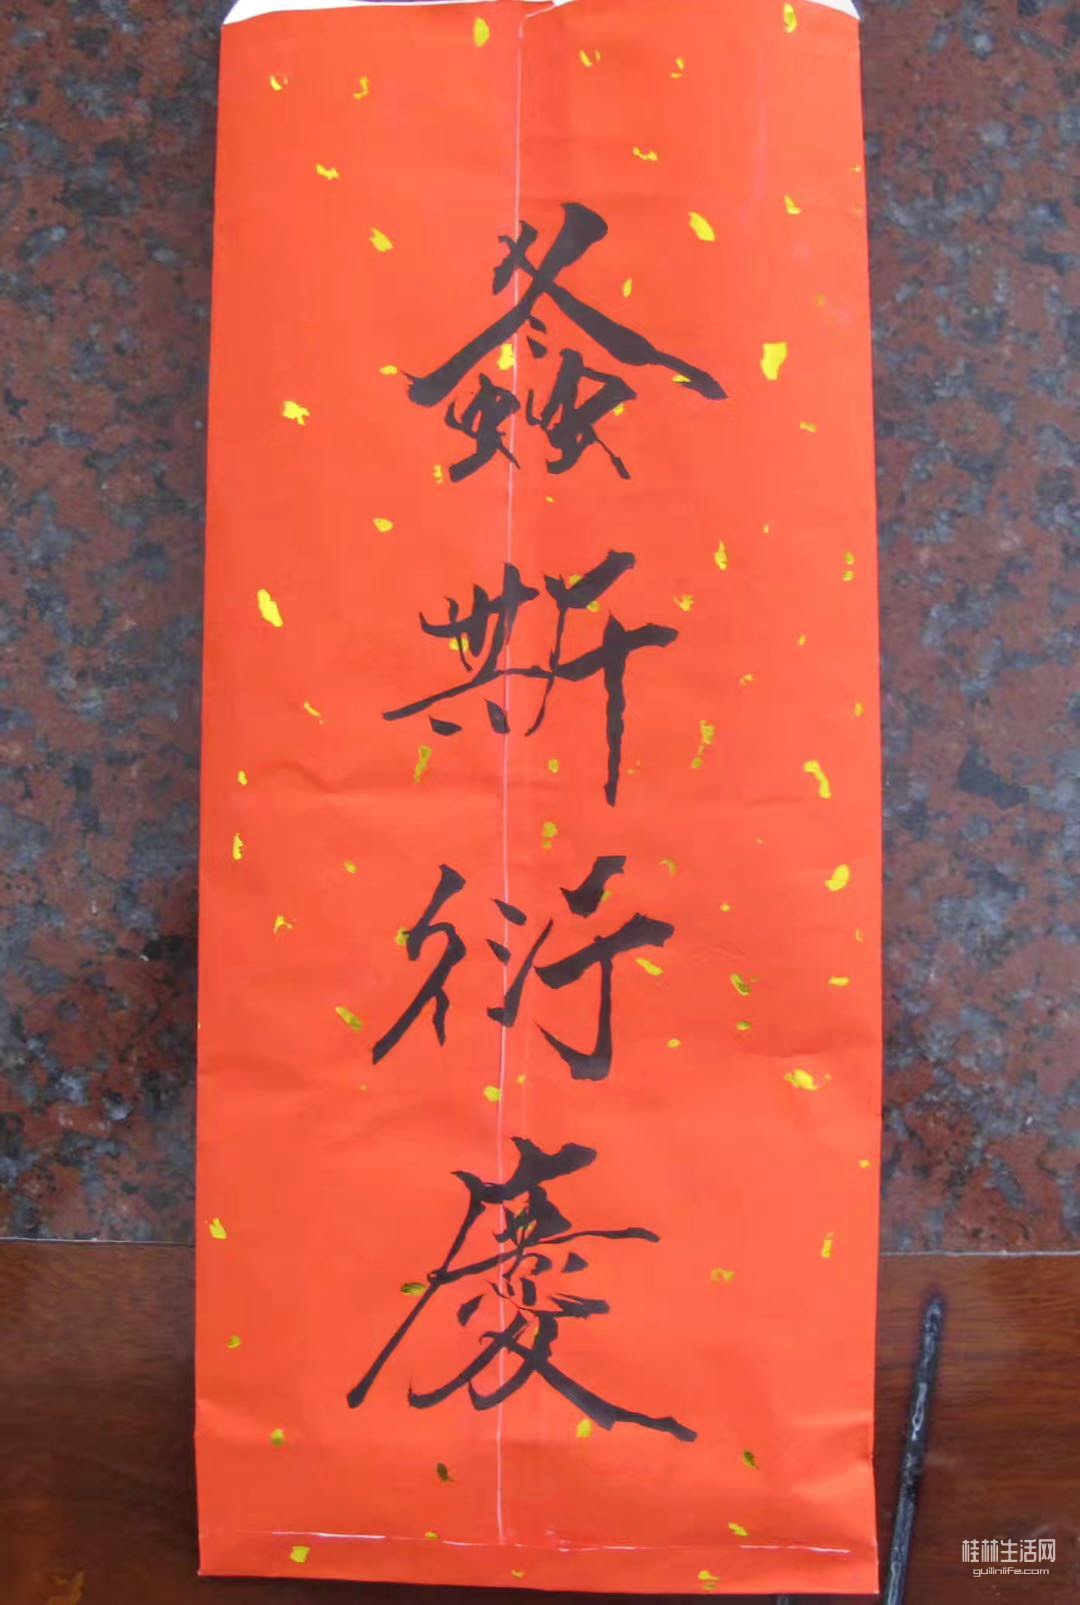 螽斯衍慶
桂林生活网
guilinlife.com